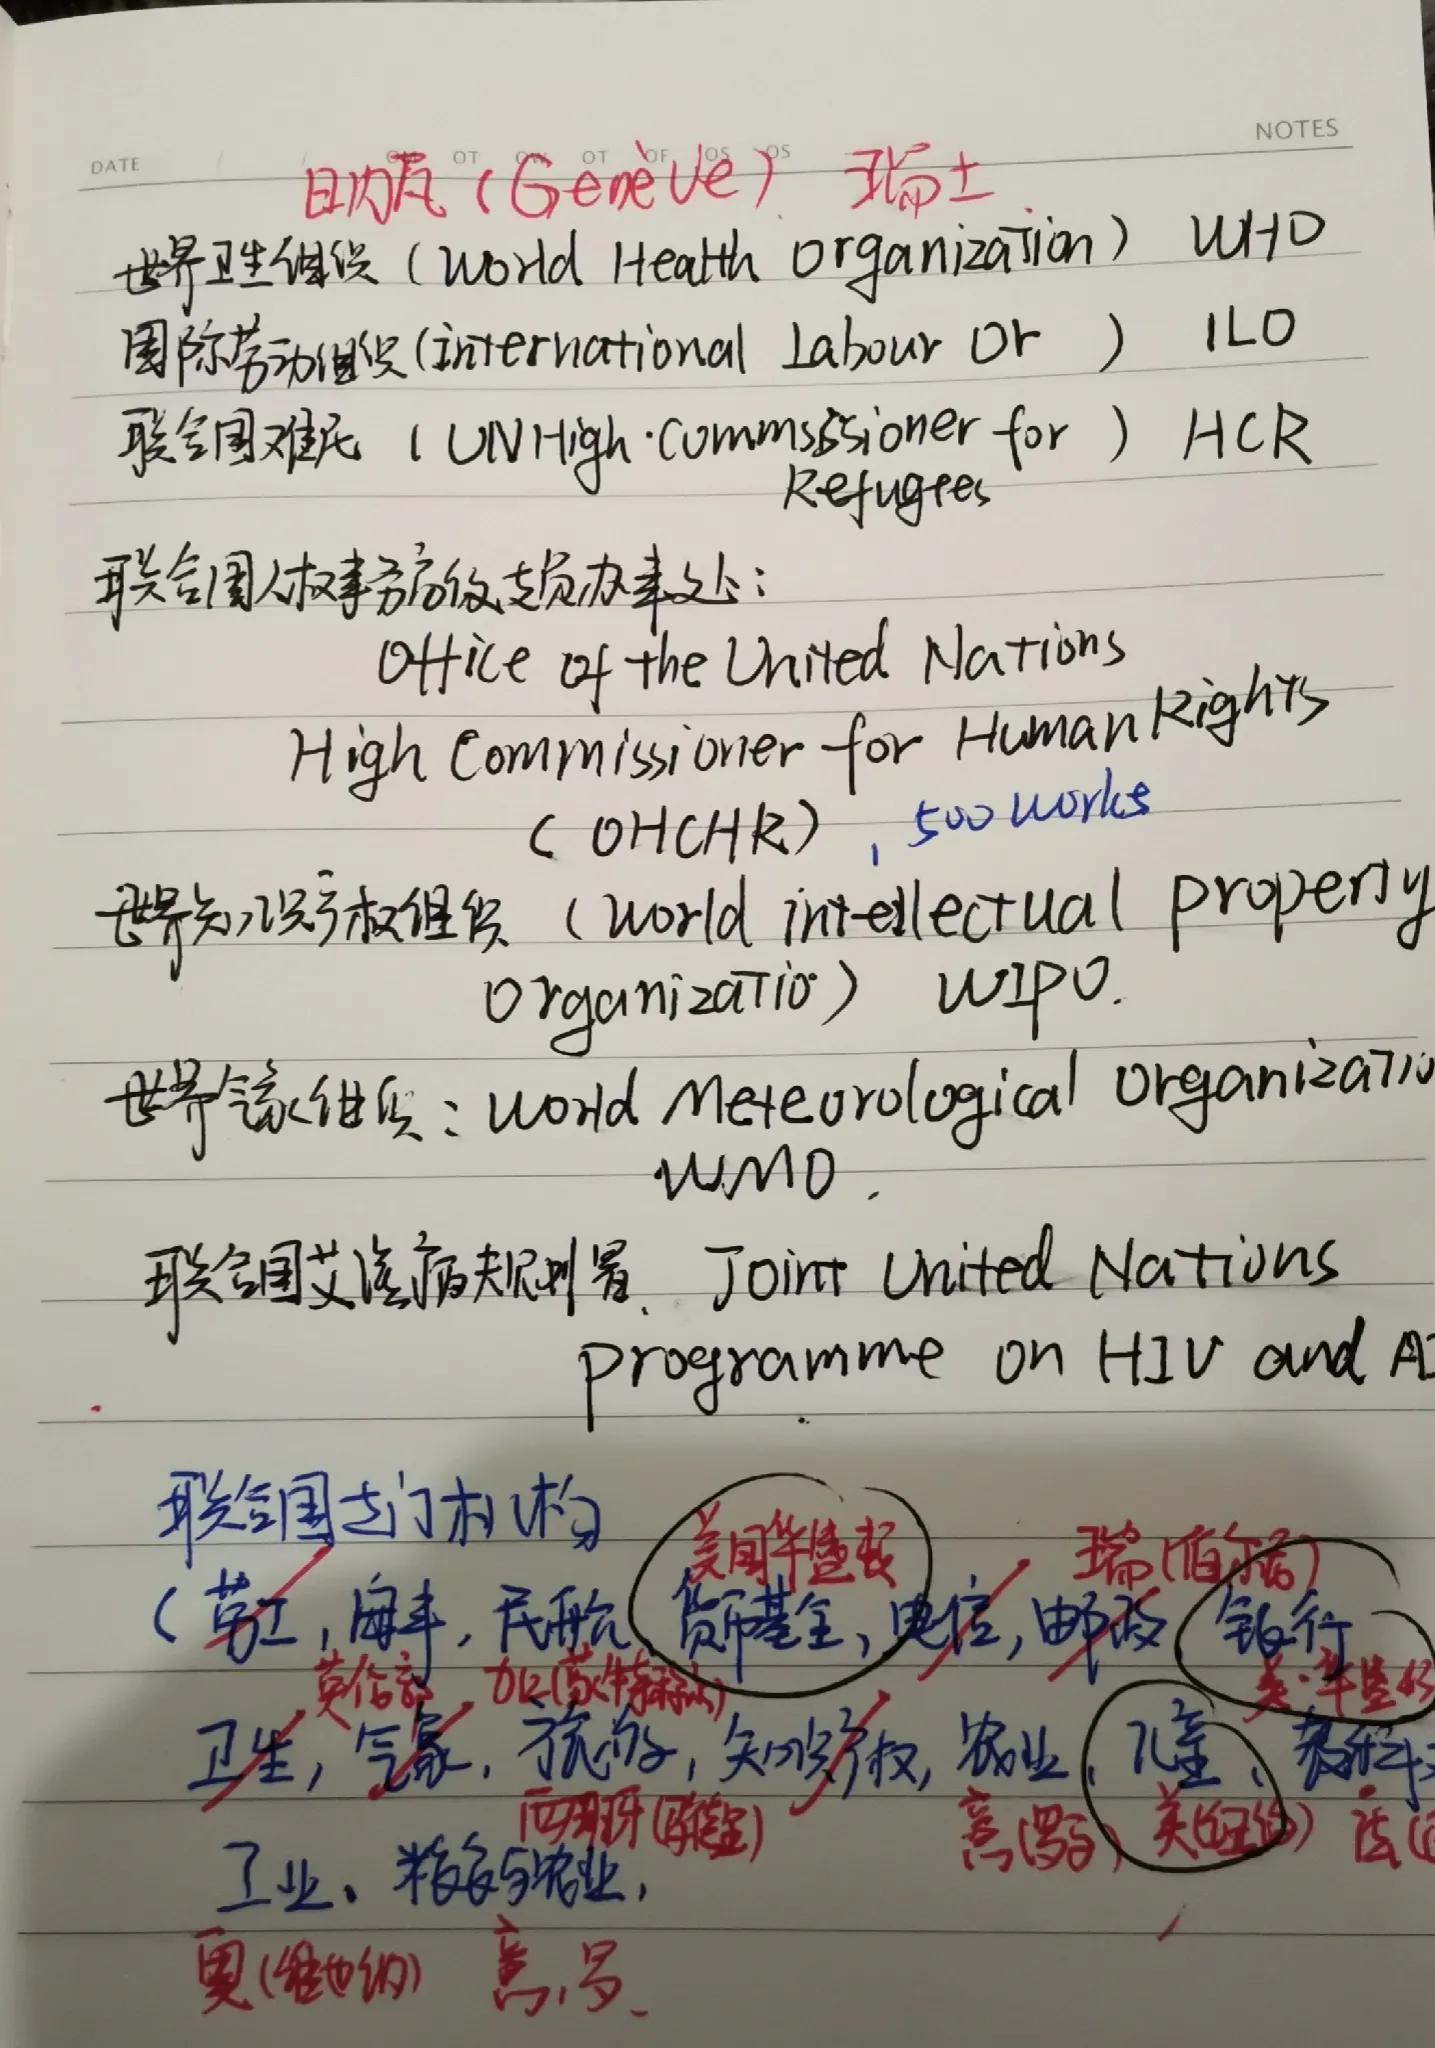 DATE / / OM OT OW OT OF OS OS NOTES
日内瓦 (Genève) 瑞士
世界卫生组织 (World Health Organization) WHO
国际劳动组织 (international Labour Or ) ILO
联合国难民 (UNHigh·Commsssioner for ) HCR
Refugees
联合国人权事务高级专员办事处:
Office of the United Nations
High Commissioner for Human Rights
(OHCHR), 500 works
世界知识产权组织 (World intellectual property
Organizatio) WIPO.
世界气象组织: World Meteorological Organizatio
WMO.
联合国艾滋病规划署. Joint United Nations
programme on HIV and AI
联合国专门机构
美国华盛顿 瑞(伯尔尼)
(劳工, 海事, 民航 货币基金, 电信, 邮政 银行
英伦敦 加(蒙特利尔) 美·华盛顿
卫生, 气象, 旅游, 知识产权, 农业, 儿童、教科文
西班牙(马德里) 意(罗马) 美(纽约) 法(
工业、粮食与农业,
奥(维也纳) 意,罗.